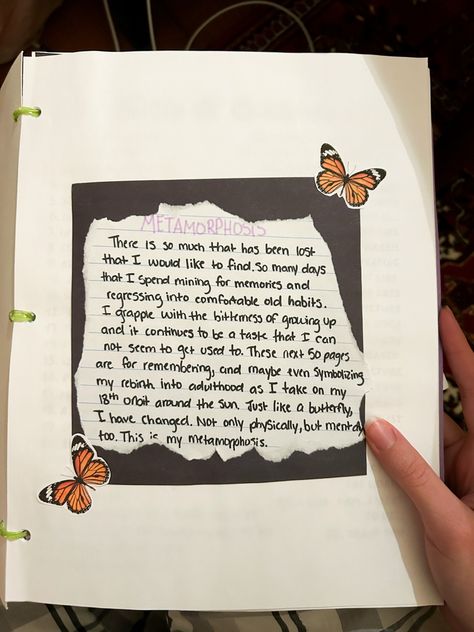 METAMORPHOSIS
There is so much that has been lost
that I would like to find. So many days
that I spend mining for memories and
regressing into comfortable old habits.
I grapple with the bitterness of growing up
and it continues to be a taste that I can
not seem to get used to. These next 50 pages
are for remembering, and maybe even symbolizing
my rebirth into adulthood as I take on my
18th orbit around the sun. Just like a butterfly,
I have changed. Not only physically, but mentally
too. This is my metamorphosis.